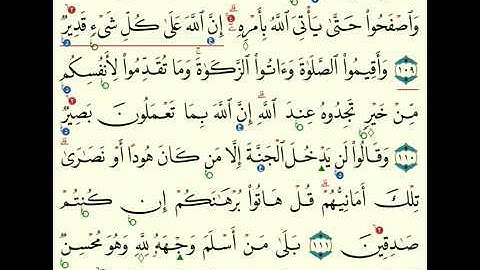 وَٱصۡفَحُواْ حَتَّىٰ يَأۡتِيَ ٱللَّهُ بِأَمۡرِهِۦٓۗ إِنَّ ٱللَّهَ عَلَىٰ كُلِّ شَيۡءٖ قَدِيرٞ
١٠٩ وَأَقِيمُواْ ٱلصَّلَوٰةَ وَءَاتُواْ ٱلزَّكَوٰةَۚ وَمَا تُقَدِّمُواْ لِأَنفُسِكُم
مِّنۡ خَيۡرٖ تَجِدُوهُ عِندَ ٱللَّهِۗ إِنَّ ٱللَّهَ بِمَا تَعۡمَلُونَ بَصِيرٞ
١١٠ وَقَالُواْ لَن يَدۡخُلَ ٱلۡجَنَّةَ إِلَّا مَن كَانَ هُودًا أَوۡ نَصَٰرَىٰۗ
تِلۡكَ أَمَانِيُّهُمۡۗ قُلۡ هَاتُواْ بُرۡهَٰنَكُمۡ إِن كُنتُمۡ
صَٰدِقِينَ ١١١ بَلَىٰۚ مَنۡ أَسۡلَمَ وَجۡهَهُۥ لِلَّهِ وَهُوَ مُحۡسِنٞ